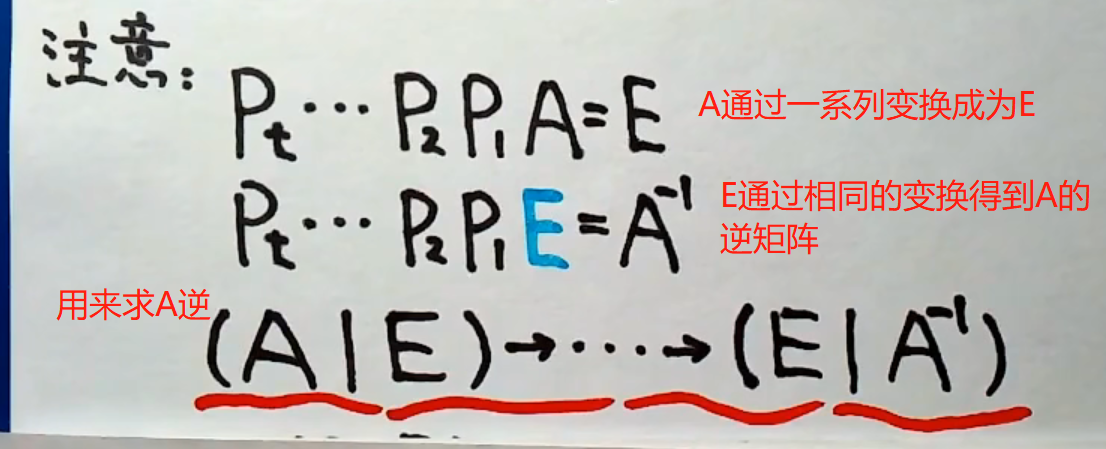 注意:
Pt ··· P2 P1 A = E
A通过一系列变换成为E
Pt ··· P2 P1 E = A⁻¹
E通过相同的变换得到A的
逆矩阵
用来求A逆
(A | E) → ··· → (E | A⁻¹)